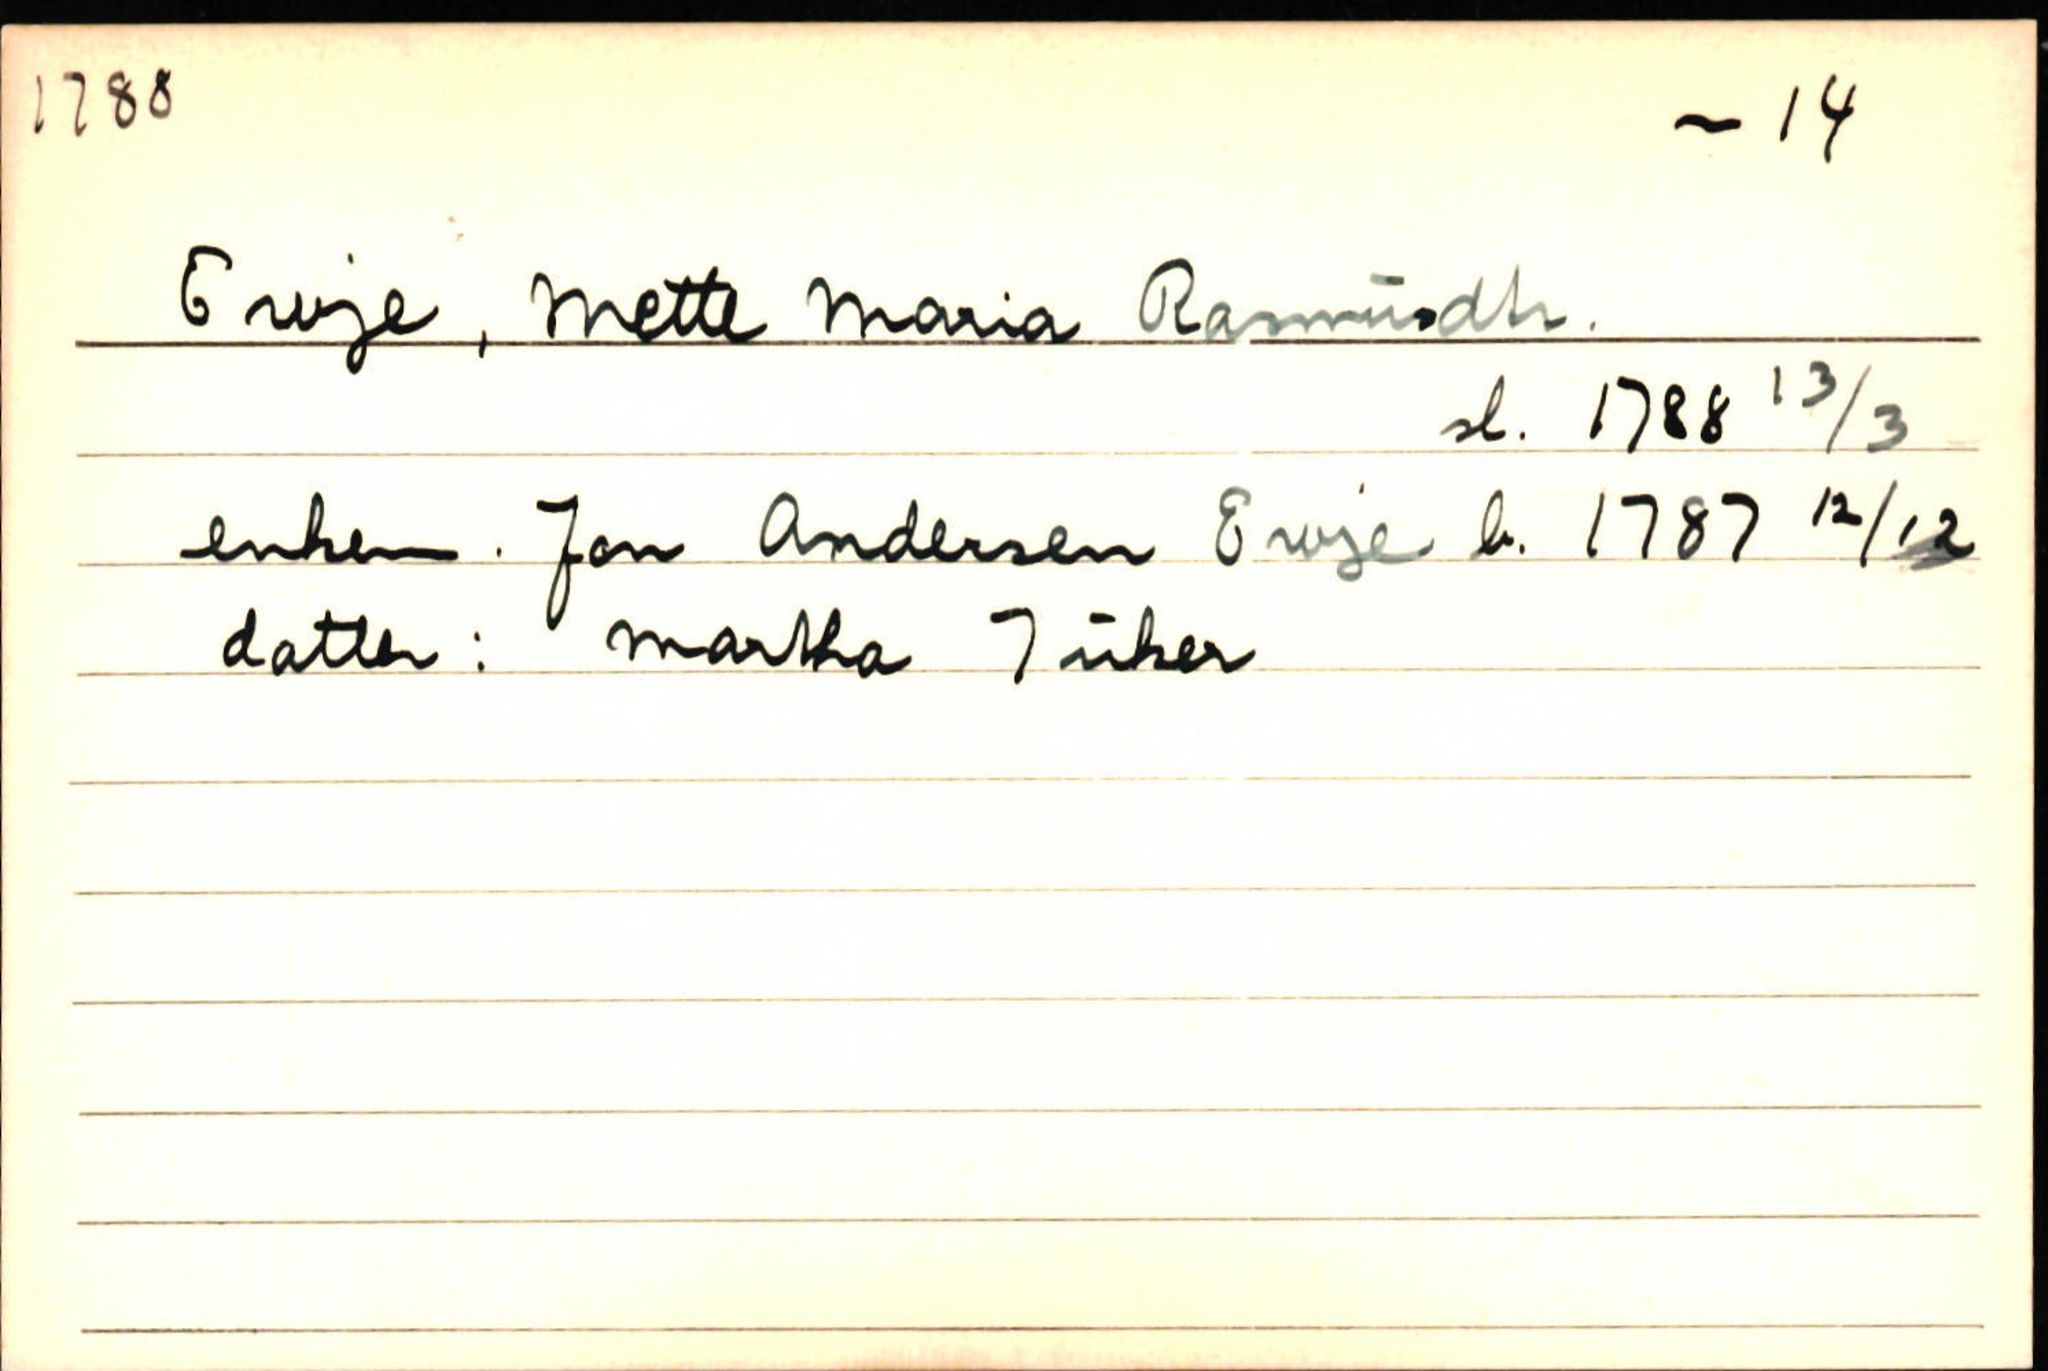 1788
~ 14
Ewje, Mette Maria Rasmusdtr.
sl. 1788 13/3
enkem. Jon Andersen Ewje b. 1787 12/12
datter: Martha Tuker